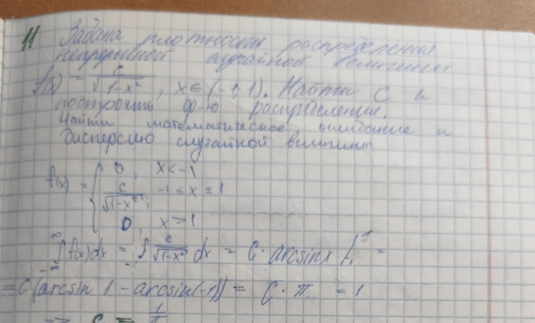 11 Задана плотность распределения
непрерывной случайной величины
f(x) = c/√(1-x²), x ∈ (-1; 1). Найти C и
построить ф-ю распределения.
Найти математическое ожидание и
дисперсию случайной величины
f(x) = { 0, x < -1
c/√(1-x²), -1 ≤ x ≤ 1
0, x > 1
∫f(x)dx = ∫ c/√(1-x²) dx = C · arcsin x |₋₁¹ =
= C(arcsin 1 - arcsin(-1)) = C · π = 1
=> C = 1/π